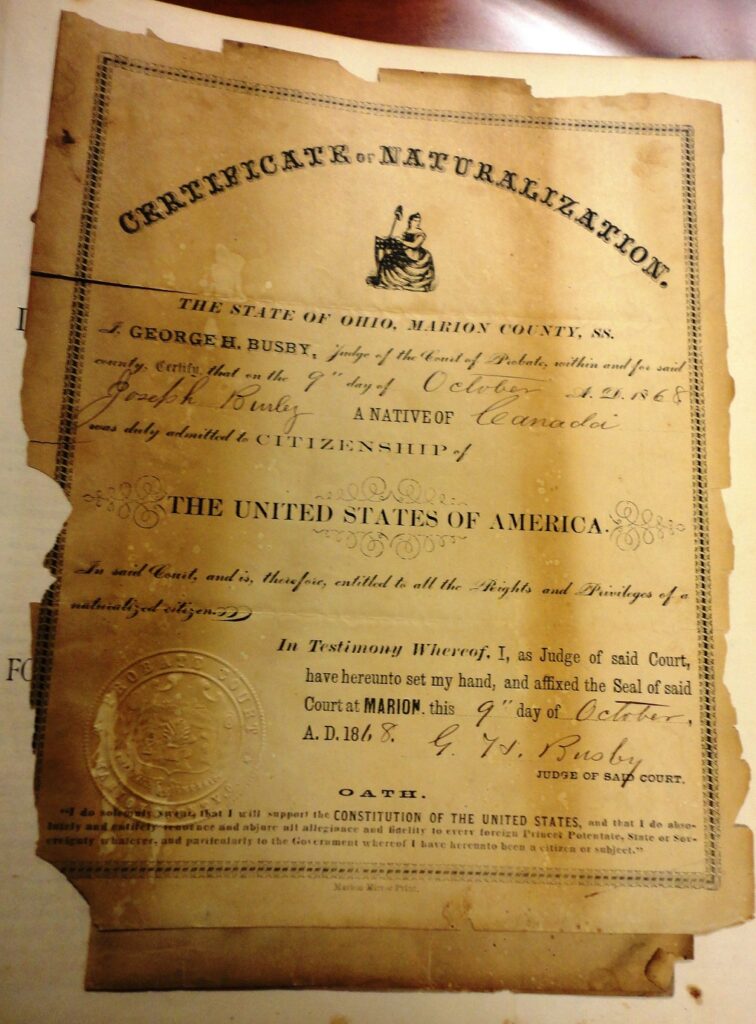 CERTIFICATE OF NATURALIZATION.
THE STATE OF OHIO, MARION COUNTY, SS.
I, GEORGE H. BUSBY, Judge of the Court of Probate, within and for said
county, Certify that on the 9" day of October A. D. 1868
Joseph Burley A NATIVE OF Canada
was duly admitted to CITIZENSHIP of
THE UNITED STATES OF AMERICA.
In said Court, and is, therefore, entitled to all the Rights and Privileges of a
naturalized citizen.
In Testimony Whereof, I, as Judge of said Court,
have hereunto set my hand, and affixed the Seal of said
Court at MARION, this 9" day of October,
A. D. 1868. G. H. Busby
JUDGE OF SAID COURT.
PROBATE COURT
OATH.
"I do solemnly swear, that I will support the CONSTITUTION OF THE UNITED STATES, and that I do abso-
lutely and entirely renounce and abjure all allegiance and fidelity to every foreign Prince, Potentate, State or Sov-
ereignty whatever, and particularly to the Government whereof I have hereunto been a citizen or subject."
Marion Mirror Print.
FO